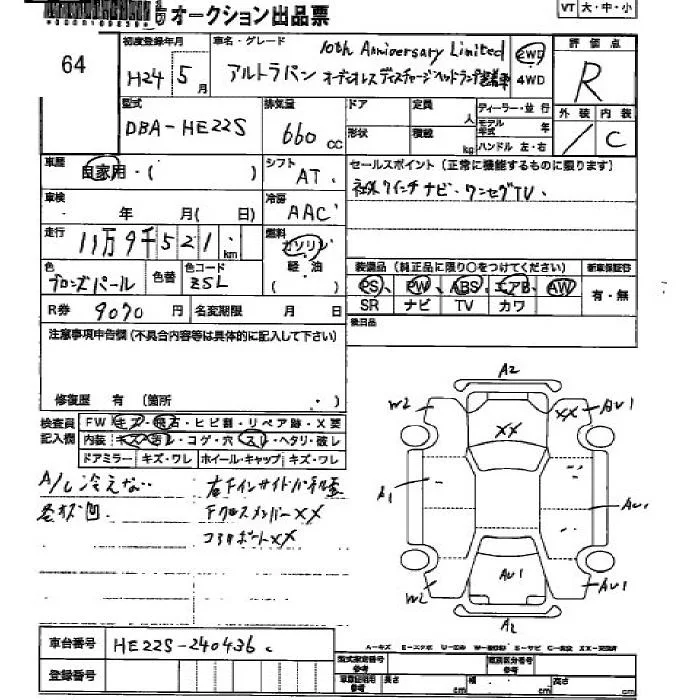 オークション出品票
VT 大・中・小
64
初度登録年月
H24 5月
車名・グレード
10th Anniversary Limited
アルトラパン オーディオレス ディスチャージヘッドランプ装着車
2WD
4WD
評価点
R
型式
DBA-HE22S
排気量
660 cc
ドア
定員 人
形状
積載 kg
ディーラー・並行
モデル年式 年
ハンドル 左・右
外装 内装
/ C
車歴
自家用・( )
シフト
AT
セールスポイント(正常に機能するものに限ります)
社外7インチナビ・ワンセグTV、
車検
年 月( 日)
冷房
AAC
走行
11万9千521 km
燃料
ガソリン
軽・油
( )
色
ブロンズパール
色替
色コード
ZSL
装備品(純正品に限り○をつけてください)
新車保証書
PS、 PW、 ABS、 エアB、 AW
SR ナビ TV カワ
有・無
R券 9070 円
名変期限 月 日
後日品
注意事項申告欄(不具合内容等は具体的に記入して下さい)
修復歴 有 (箇所 )
検査員記入欄
FW キズ・飛石・ヒビ割・リペア跡・X要
内装 キズ・汚レ・コゲ・穴・スレ・ヘタリ・破レ
ドアミラー キズ・ワレ ホイール・キャップ キズ・ワレ
A/C 冷えない
各キズ凹
右下インサイドパネル歪
下クロスメンバーXX
コアサポートXX
A2
W2
XX
AU1
XX
A1
AU1
W2
AU1
AU1
A2
車台番号 HE22S-240436
登録番号
A-キズ E-エクボ U-凹ミ
型式指定番号
参考
類別区分番号
参考
車庫証明用
参考
長さ cm
幅 cm
高さ cm